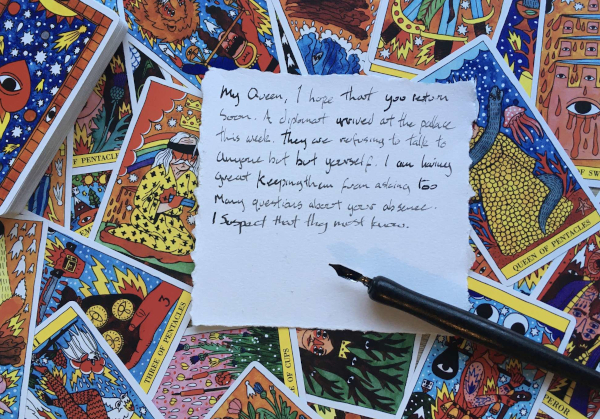 My Queen, I hope that you return
soon. A diplomat arrived at the palace
this week. They are refusing to talk to
anyone but but yourself. I am having
great keeping them from asking too
many questions about your absence.
I suspect that they must know.
OF PENTACLES
QUEEN OF PENTACLES
THREE OF PENTACLES
3
OF CUPS
OF SW
PEROR